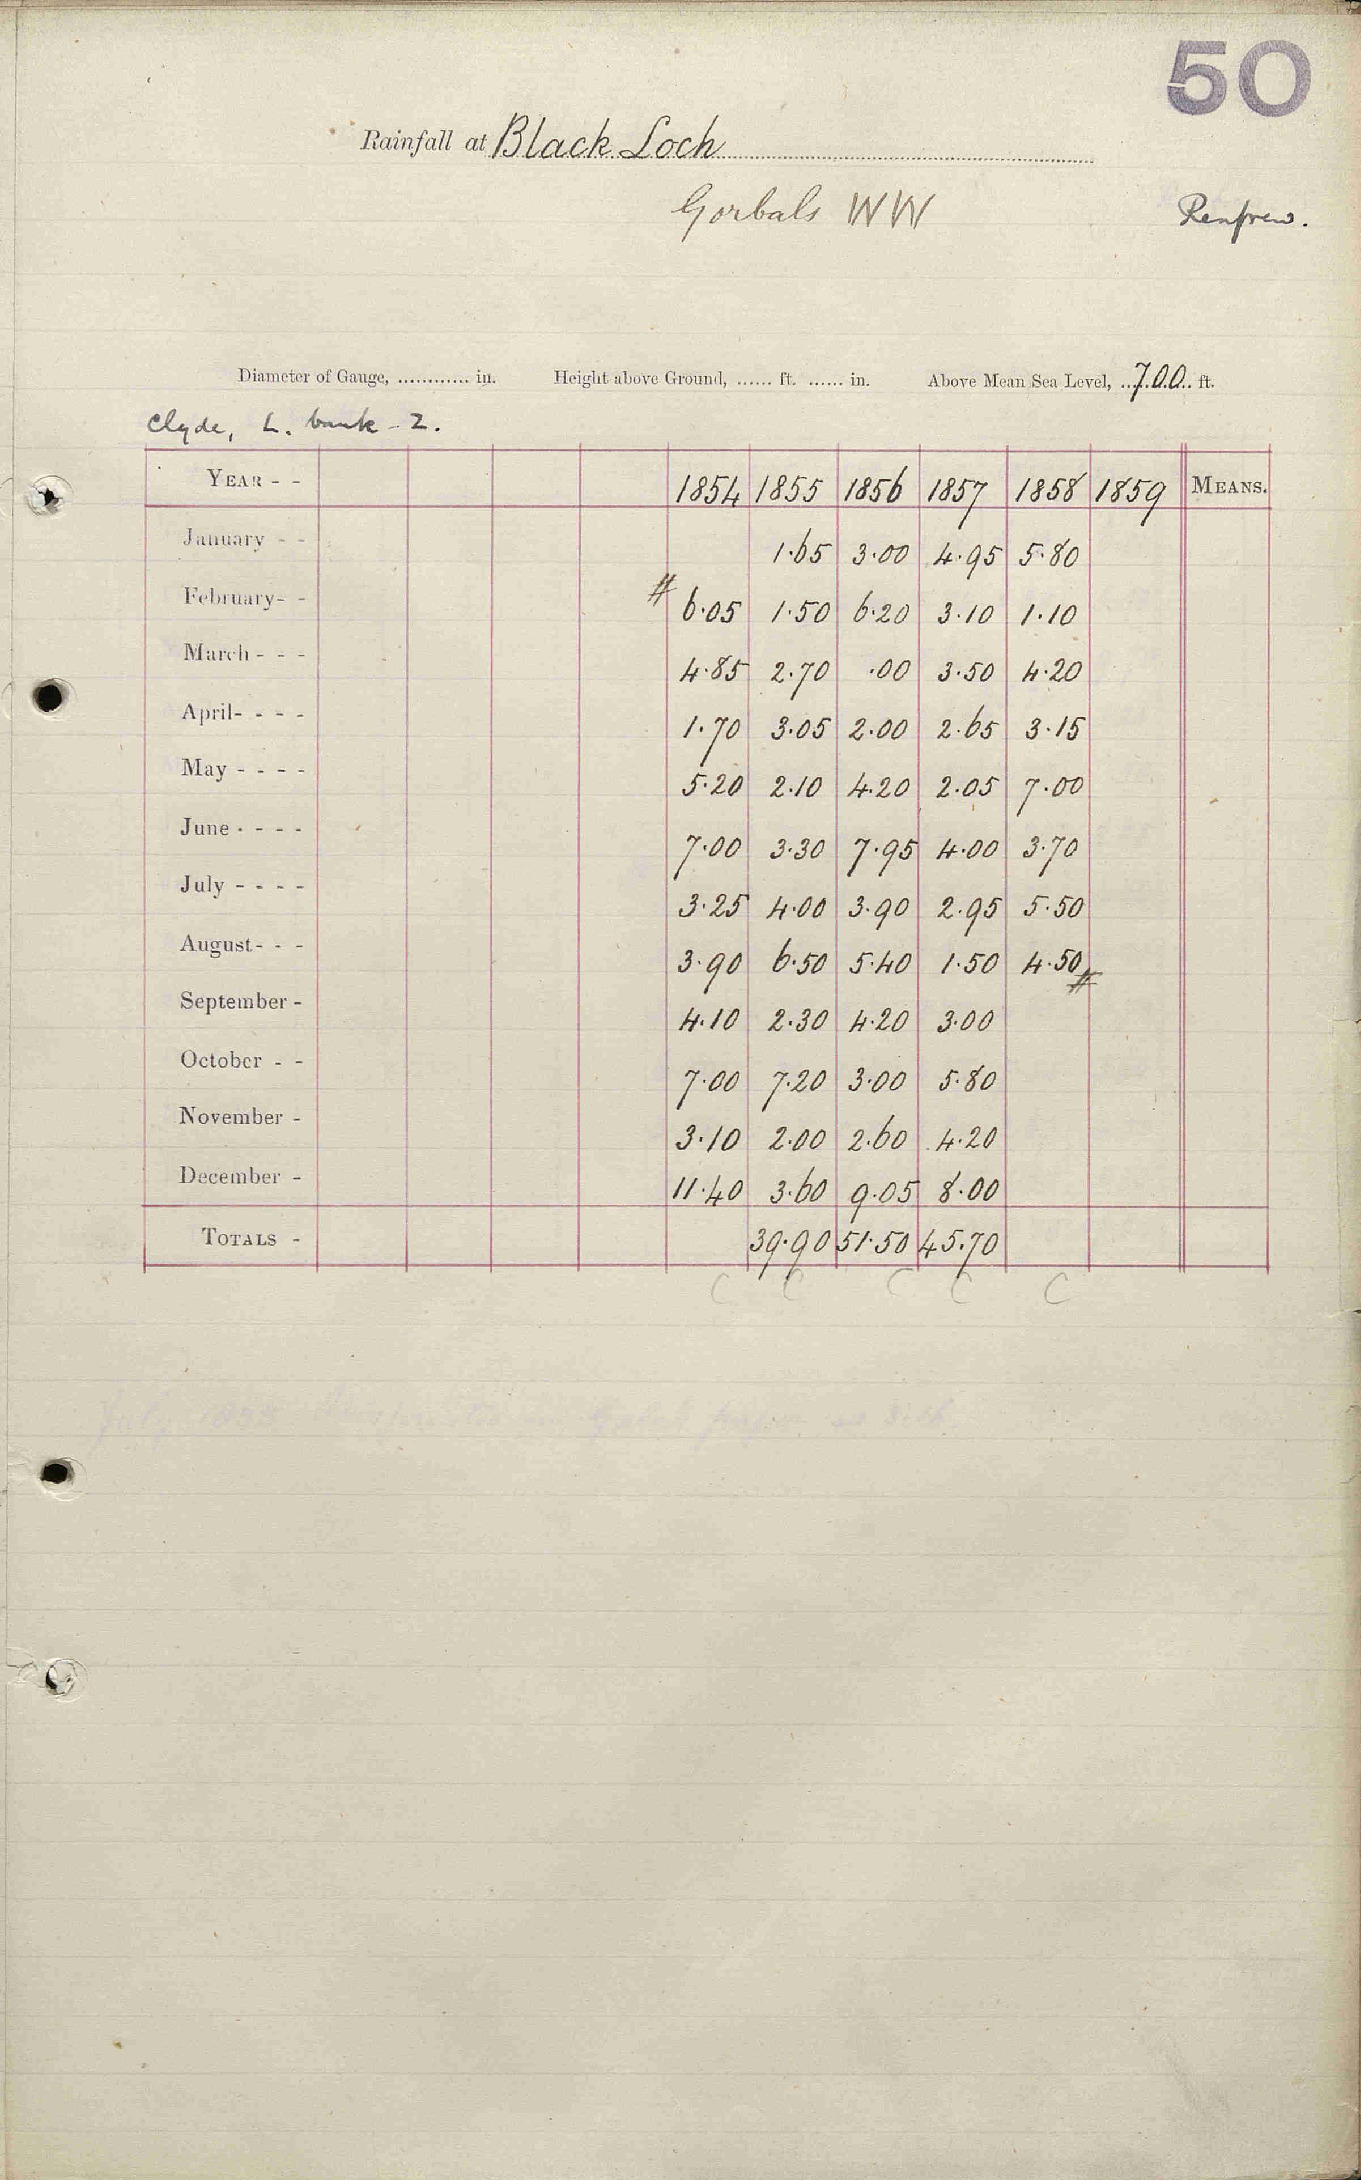 50
Rainfall at Black Loch
Gorbals WW
Renfrew.
Diameter of Gauge, ............ in. Height above Ground, ...... ft. ...... in. Above Mean Sea Level, ..700.. ft.
Clyde, L. bank - 2.
YEAR - - 1854 1855 1856 1857 1858 1859 MEANS.
January - - 1.65 3.00 4.95 5.80
February- - # 6.05 1.50 6.20 3.10 1.10
March - - - 4.85 2.70 .00 3.50 4.20
April- - - - 1.70 3.05 2.00 2.65 3.15
May - - - - 5.20 2.10 4.20 2.05 7.00
June - - - - 7.00 3.30 7.95 4.00 3.70
July - - - - 3.25 4.00 3.90 2.95 5.50
August- - - 3.90 6.50 5.40 1.50 4.50 #
September - 4.10 2.30 4.20 3.00
October - - 7.00 7.20 3.00 5.80
November - 3.10 2.00 2.60 4.20
December - 11.40 3.60 9.05 8.00
TOTALS - 39.90 51.50 45.70
C C C C C
July 1855